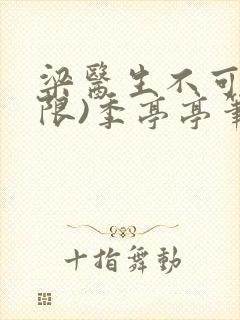 梁醫生不可
限)季亭亭筆
十指舞動